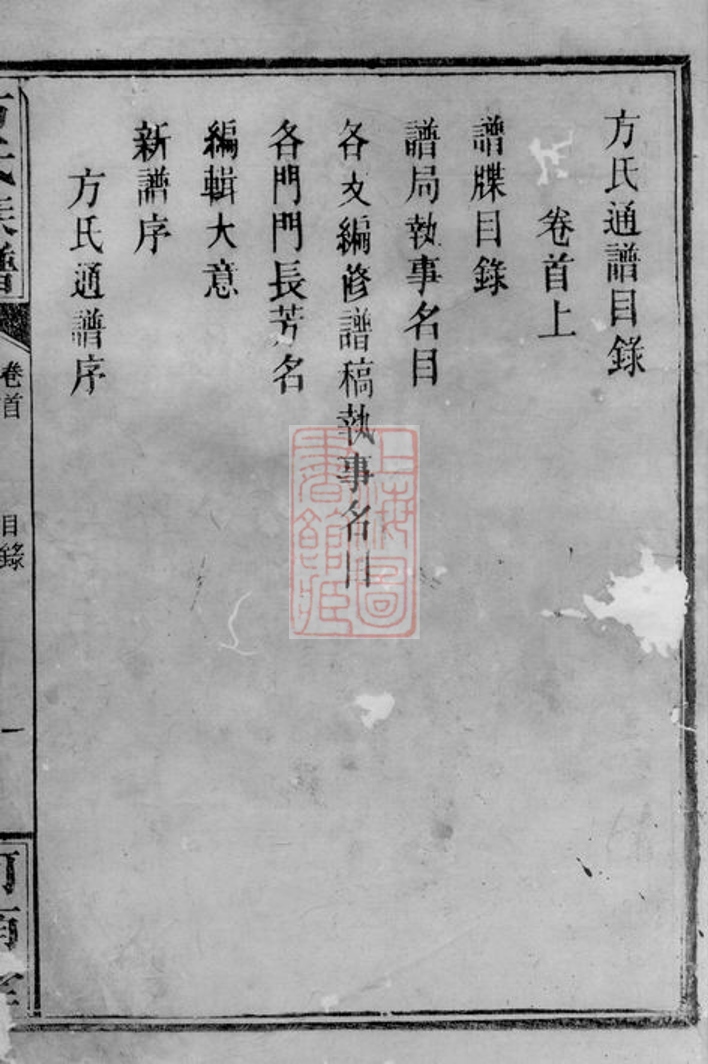 方氏通譜目錄
卷首上
譜牒目錄
譜局執事名目
各支編修譜稿執事名目
各門門長芳名
編輯大意
新譜序
方氏通譜序
方氏族譜
卷首
目錄
一
河南堂
上海圖書館藏